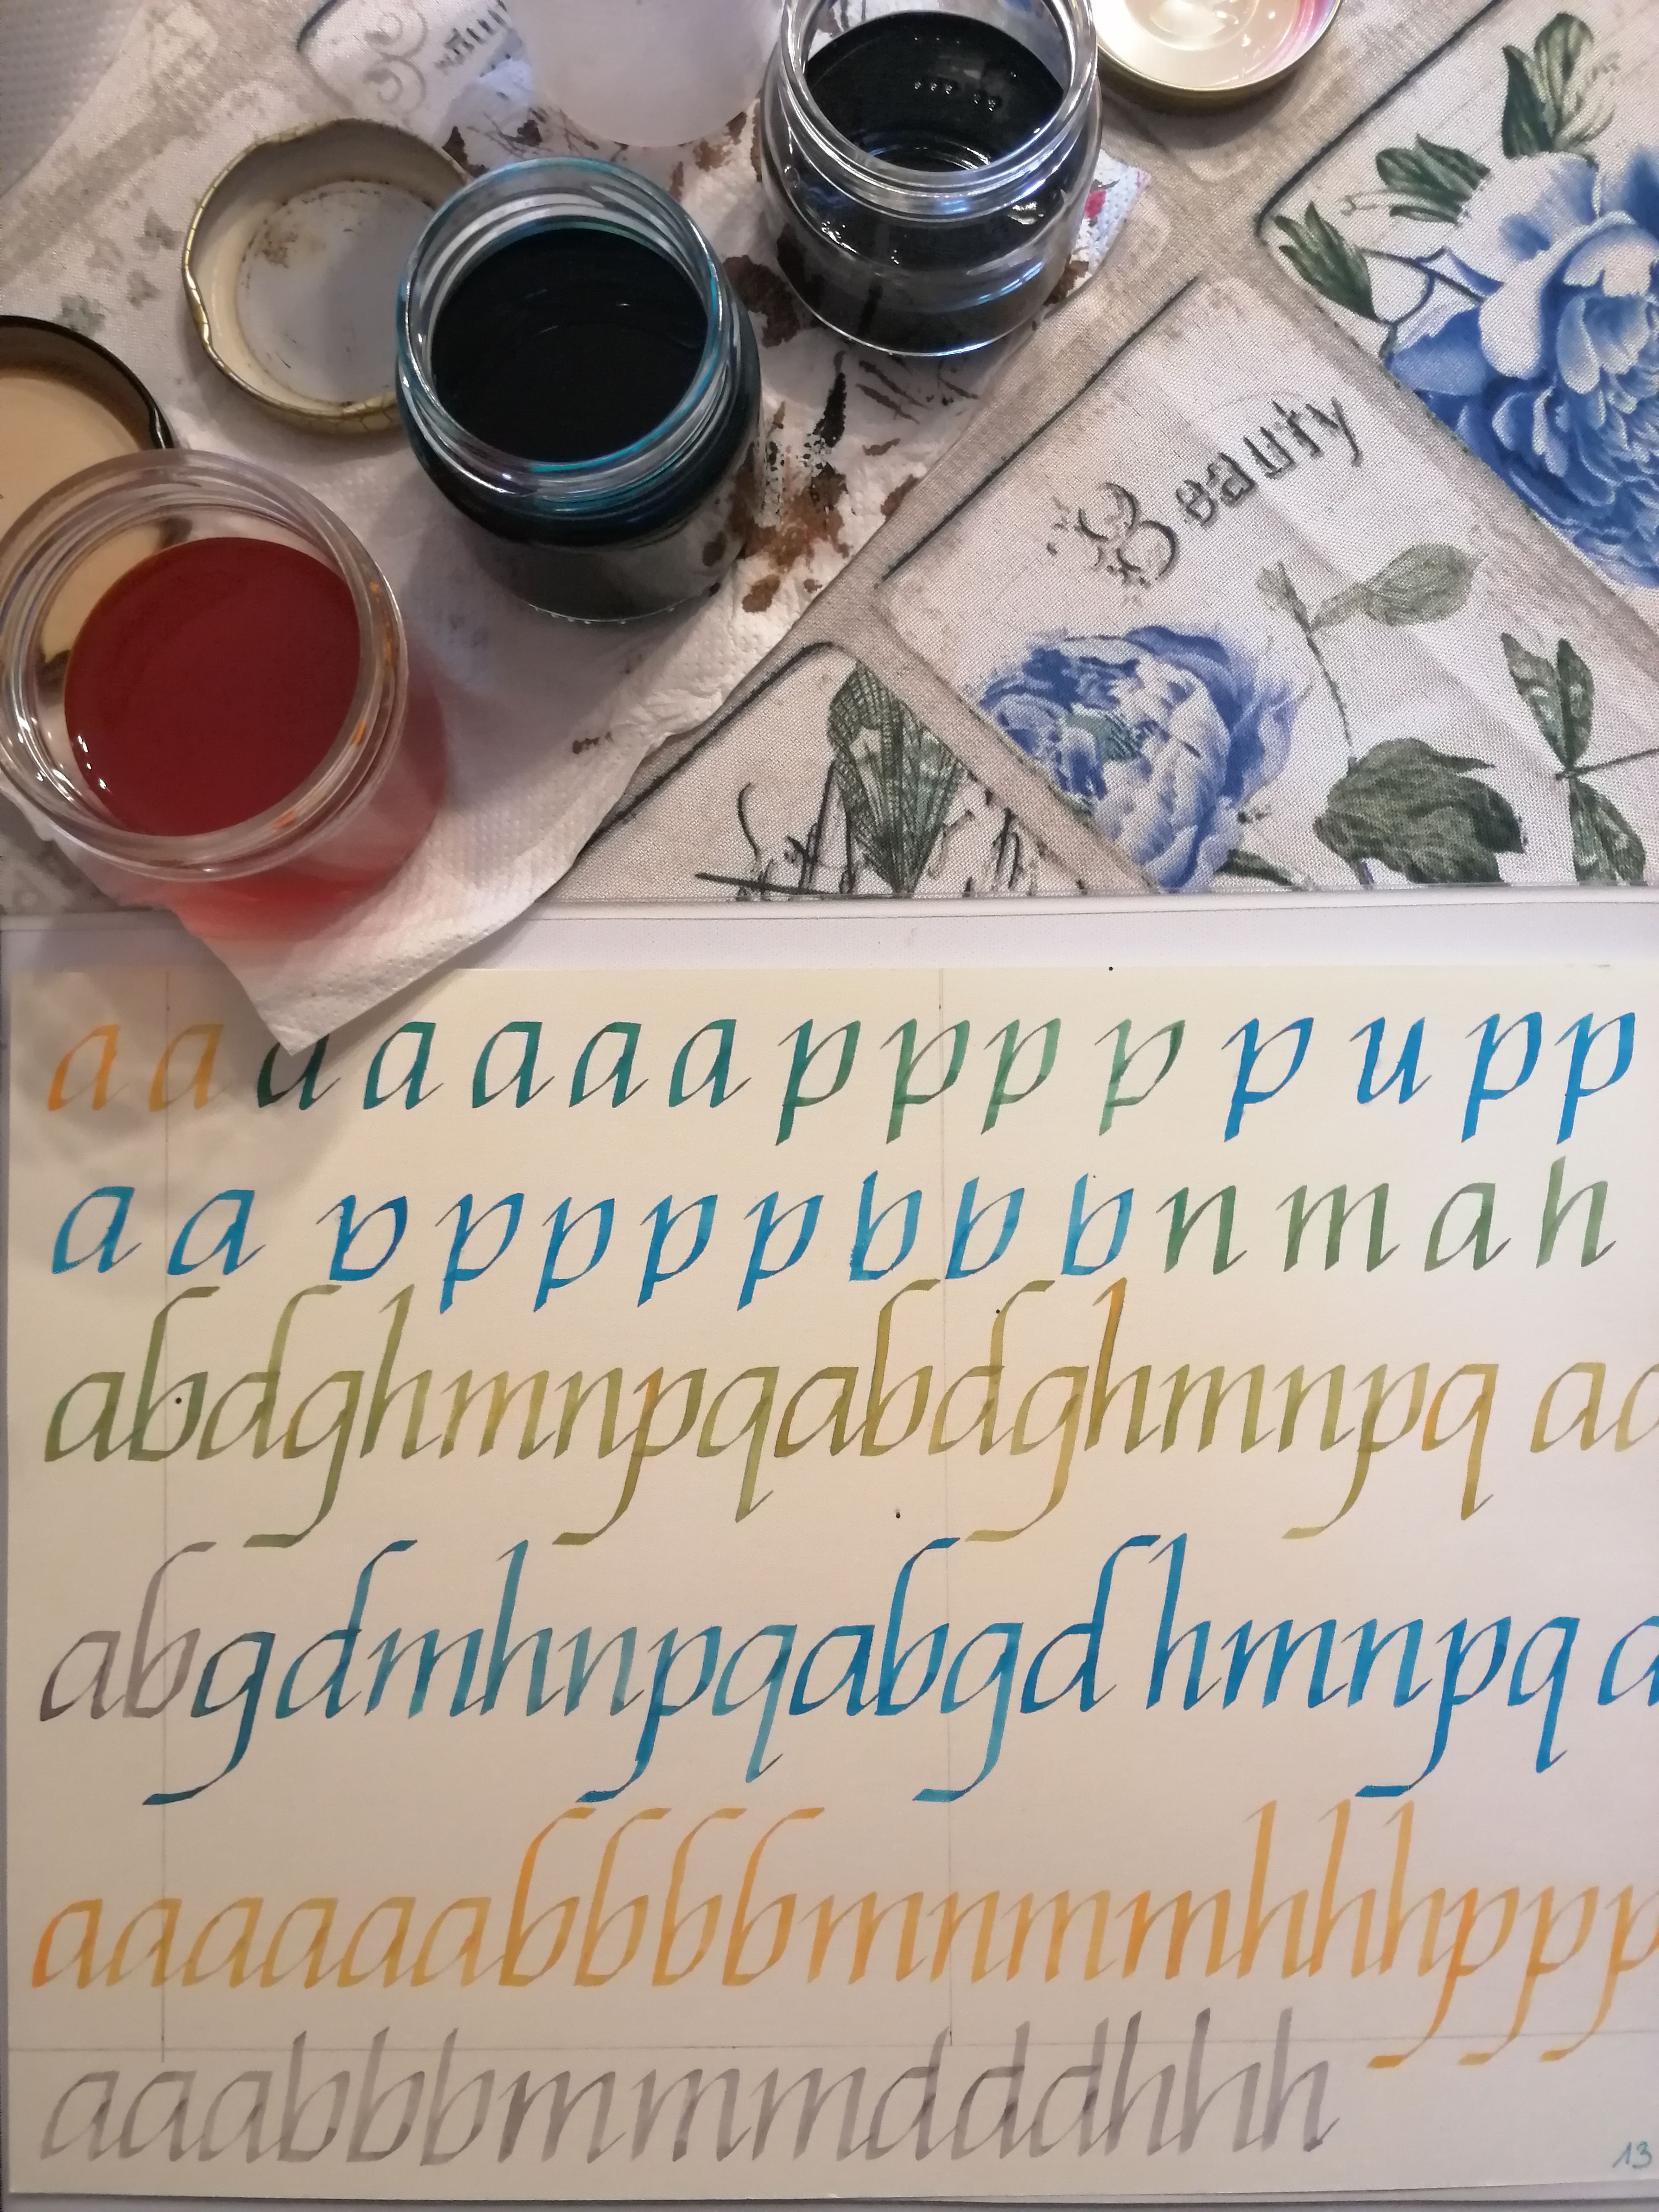 Beauty
a a a a a a a p p p p p u p p
a a p p p p b b b n m a h
abdghmnpqabdghmnpq a
abgdmhnpqabgd hmnpq a
aaaaaabbbbmnmmhhhppp
aaabbbmmmdddhhh
13